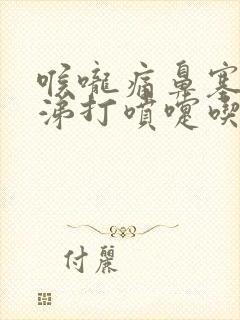 喉嚨痛鼻塞
涕打噴嚏喫
付麗